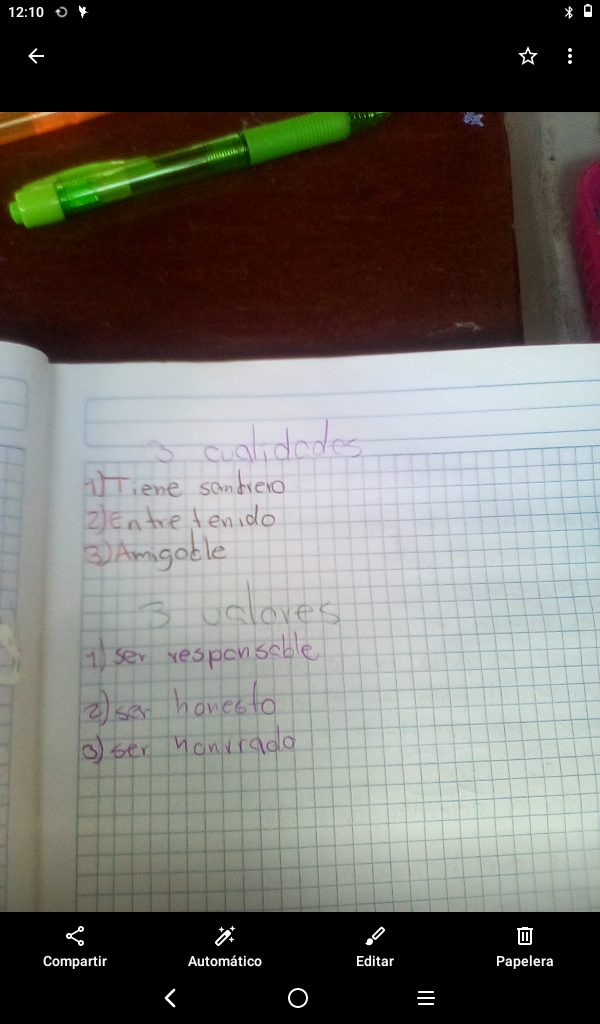 12:10
3 cualidades
1) Tiene sombrero
2) Entretenido
3) Amigable
3 valores
1) ser responsable
2) ser honesto
3) ser honrrado
Compartir Automático Editar Papelera